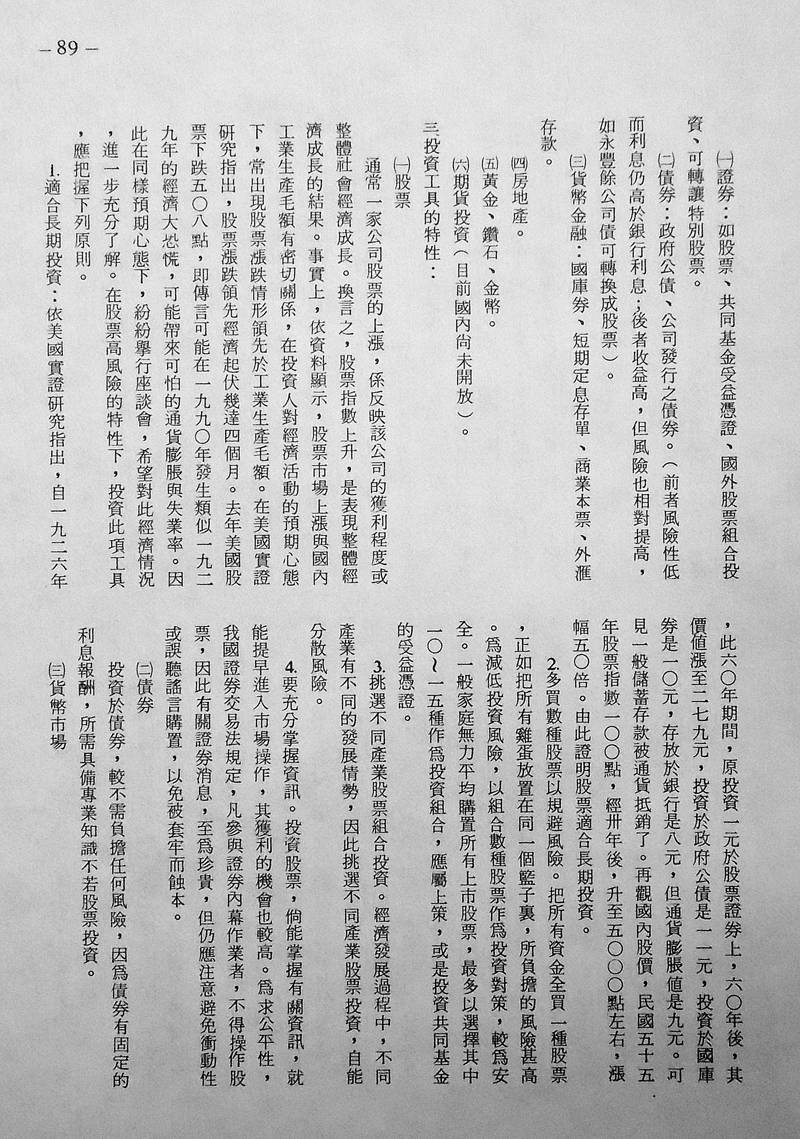 －89－
㈠證券：如股票、共同基金受益憑證、國外股票組合投
資、可轉讓特別股票。
㈡債券：政府公債、公司發行之債券。（前者風險性低
而利息仍高於銀行利息；後者收益高，但風險也相對提高，
如永豐餘公司債可轉換成股票）。
㈢貨幣金融：國庫券、短期定息存單、商業本票、外滙
存款。
㈣房地產。
㈤黃金、鑽石、金幣。
㈥期貨投資（目前國內尚未開放）。
三、投資工具的特性：
㈠股票
通常一家公司股票的上漲，係反映該公司的獲利程度或
整體社會經濟成長。換言之，股票指數上升，是表現整體經
濟成長的結果。事實上，依資料顯示，股票市場上漲與國內
工業生產毛額有密切關係，在投資人對經濟活動的預期心態
下，常出現股票漲跌情形領先於工業生產毛額。在美國實證
研究指出，股票漲跌領先經濟起伏幾達四個月。去年美國股
票下跌五０八點，即傳言可能在一九九０年發生類似一九二
九年的經濟大恐慌，可能帶來可怕的通貨膨脹與失業率。因
此在同樣預期心態下，紛紛舉行座談會，希望對此經濟情況
，進一步充分了解。在股票高風險的特性下，投資此項工具
，應把握下列原則。
1.適合長期投資：依美國實證研究指出，自一九二六年
，此六０年期間，原投資一元於股票證券上，六０年後，其
價值漲至二七九元，投資於政府公債是一一元，投資於國庫
券是一０元，存放於銀行是八元，但通貨膨脹值是九元。可
見一般儲蓄存款被通貨抵銷了。再觀國內股價，民國五十五
年股票指數一００點，經卅年後，升至五０００點左右，漲
幅五０倍。由此證明股票適合長期投資。
2.多買數種股票以規避風險。把所有資金全買一種股票
，正如把所有雞蛋放置在同一個籃子裏，所負擔的風險甚高
。爲減低投資風險，以組合數種股票作爲投資對策，較爲安
全。一般家庭無力平均購置所有上市股票，最多以選擇其中
一０～一五種作爲投資組合，應屬上策，或是投資共同基金
的受益憑證。
3.挑選不同產業股票組合投資。經濟發展過程中，不同
產業有不同的發展情勢，因此挑選不同產業股票投資，自能
分散風險。
4.要充分掌握資訊。投資股票，倘能掌握有關資訊，就
能提早進入市場操作，其獲利的機會也較高。爲求公平性，
我國證券交易法規定，凡參與證券內幕作業者，不得操作股
票，因此有關證券消息，至爲珍貴，但仍應注意避免衝動性
或誤聽謠言購置，以免被套牢而蝕本。
㈡債券
投資於債券，較不需負擔任何風險，因爲債券有固定的
利息報酬，所需具備專業知識不若股票投資。
㈢貨幣市場